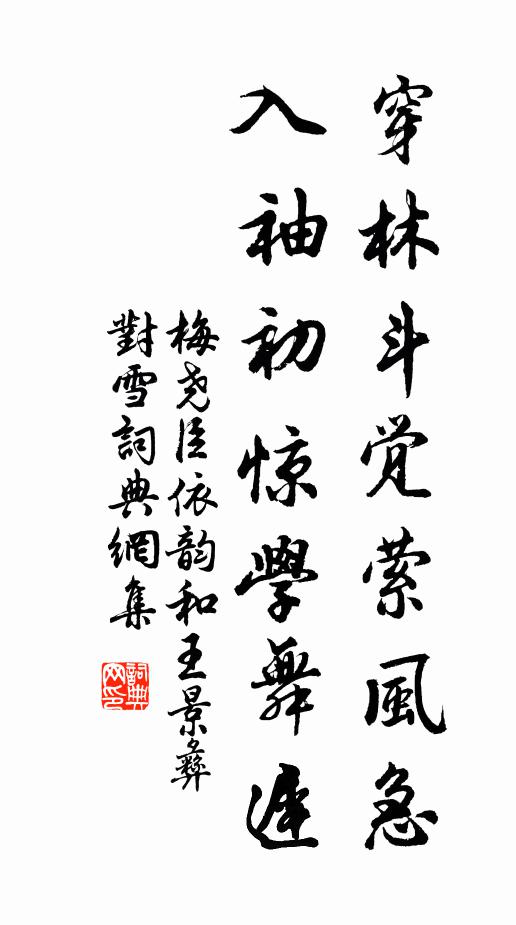 穿林斗觉萦風急
入袖初惊學舞遲
梅尧臣依韵和王景彝
對雪詞典網集
詞典
网印